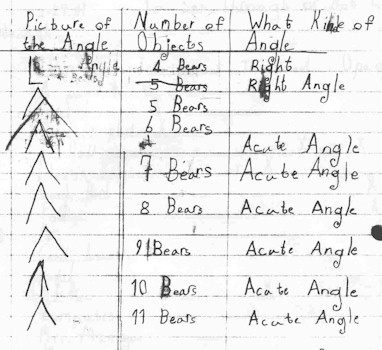 Picture of Number of What Kind of
the Angle Objects Angle
Angle 4 Bears Right
5 Bears Right Angle
5 Bears
6 Bears
Acute Angle
7 Bears Acute Angle
8 Bears Acute Angle
9 Bears Acute Angle
10 Bears Acute Angle
11 Bears Acute Angle